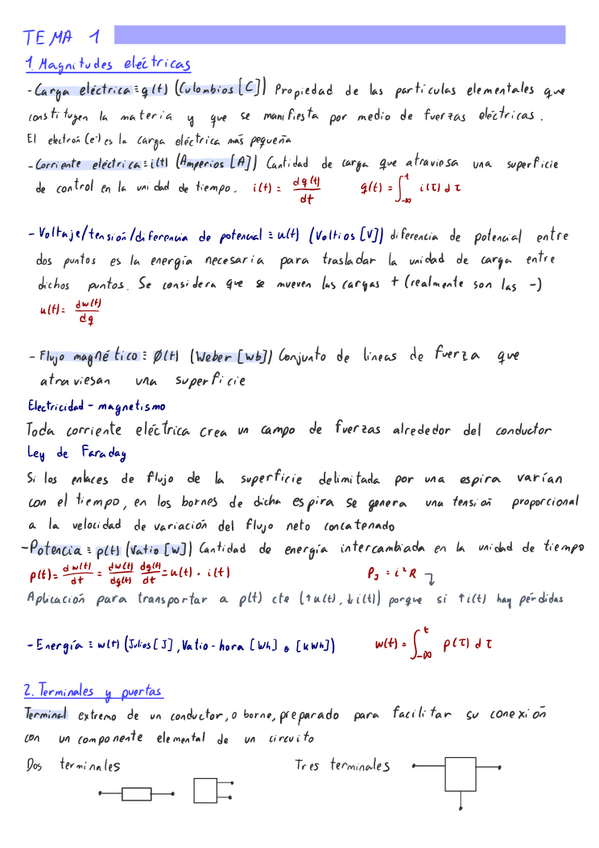 TEMA 1
1 Magnitudes eléctricas
- Carga eléctrica ≡ q(t) (Culombios [C]) Propiedad de las partículas elementales que
constituyen la materia y que se manifiesta por medio de fuerzas eléctricas.
El electrón (e⁻) es la carga eléctrica más pequeña
- Corriente eléctrica ≡ i(t) (Amperios [A]) Cantidad de carga que atraviesa una superficie
de control en la unidad de tiempo. i(t) = dq(t)/dt q(t) = ∫_{-∞}^{t} i(τ) dτ
- Voltaje/tensión/diferencia de potencial ≡ u(t) (Voltios [V]) diferencia de potencial entre
dos puntos es la energía necesaria para trasladar la unidad de carga entre
dichos puntos. Se considera que se mueven las cargas + (realmente son las -)
u(t) = dw(t)/dq
- Flujo magnético ≡ Ø(t) (Weber [Wb]) Conjunto de líneas de fuerza que
atraviesan una superficie
Electricidad - magnetismo
Toda corriente eléctrica crea un campo de fuerzas alrededor del conductor
Ley de Faraday
Si los enlaces de flujo de la superficie delimitada por una espira varían
con el tiempo, en los bornes de dicha espira se genera una tensión proporcional
a la velocidad de variación del flujo neto concatenado
- Potencia ≡ p(t) (Vatio [W]) Cantidad de energía intercambiada en la unidad de tiempo
p(t) = dw(t)/dt = dw(t)/dq(t) dq(t)/dt = u(t) · i(t) P_J = i²R
Aplicación para transportar a p(t) cte (↑u(t), ↓i(t)) porque si ↑i(t) hay pérdidas
- Energía ≡ w(t) (Julios [J], Vatio-hora [Wh] o [kWh]) w(t) = ∫_{-∞}^{t} p(τ) dτ
2. Terminales y puertas
Terminal extremo de un conductor, o borne, preparado para facilitar su conexión
con un componente elemental de un circuito
Dos terminales Tres terminales